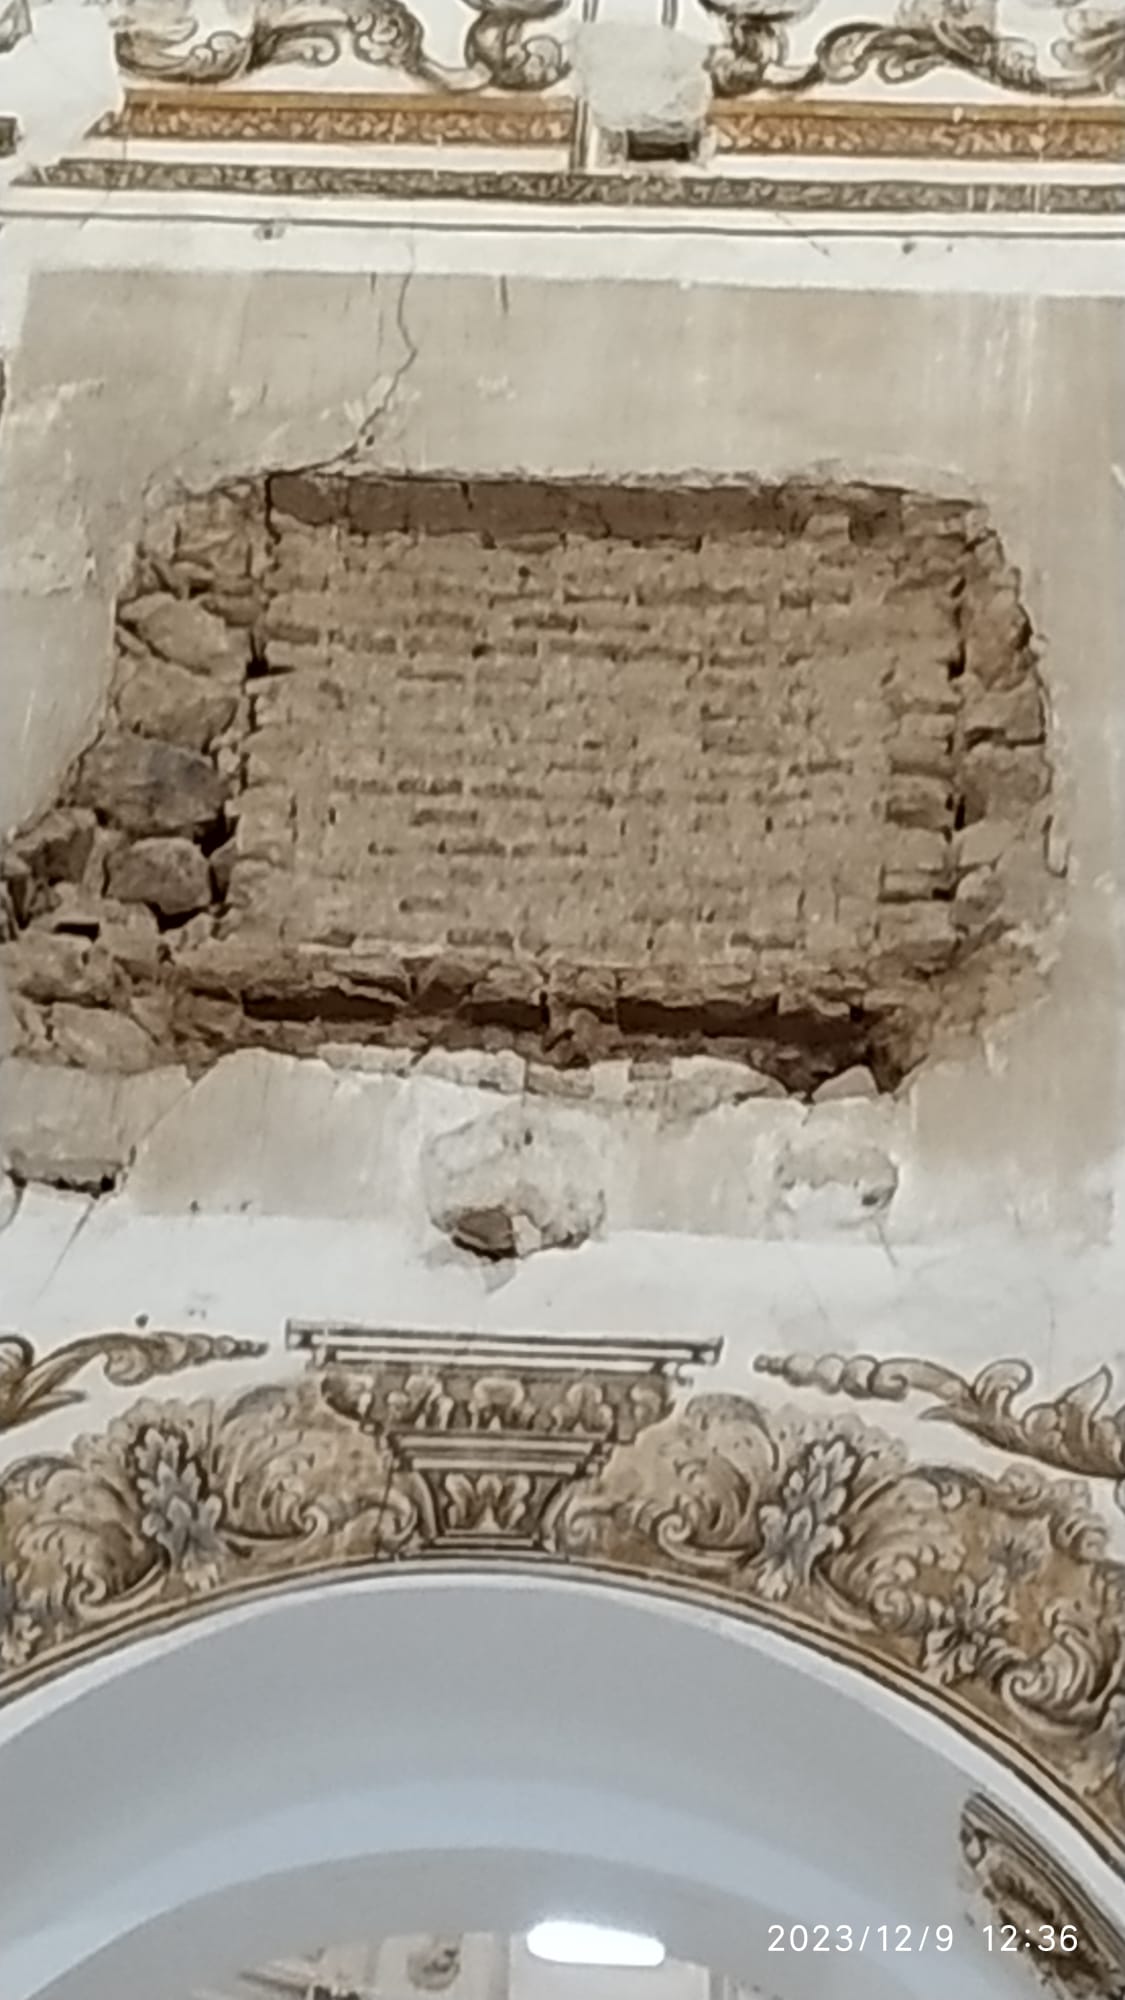 2023/12/9 12:36